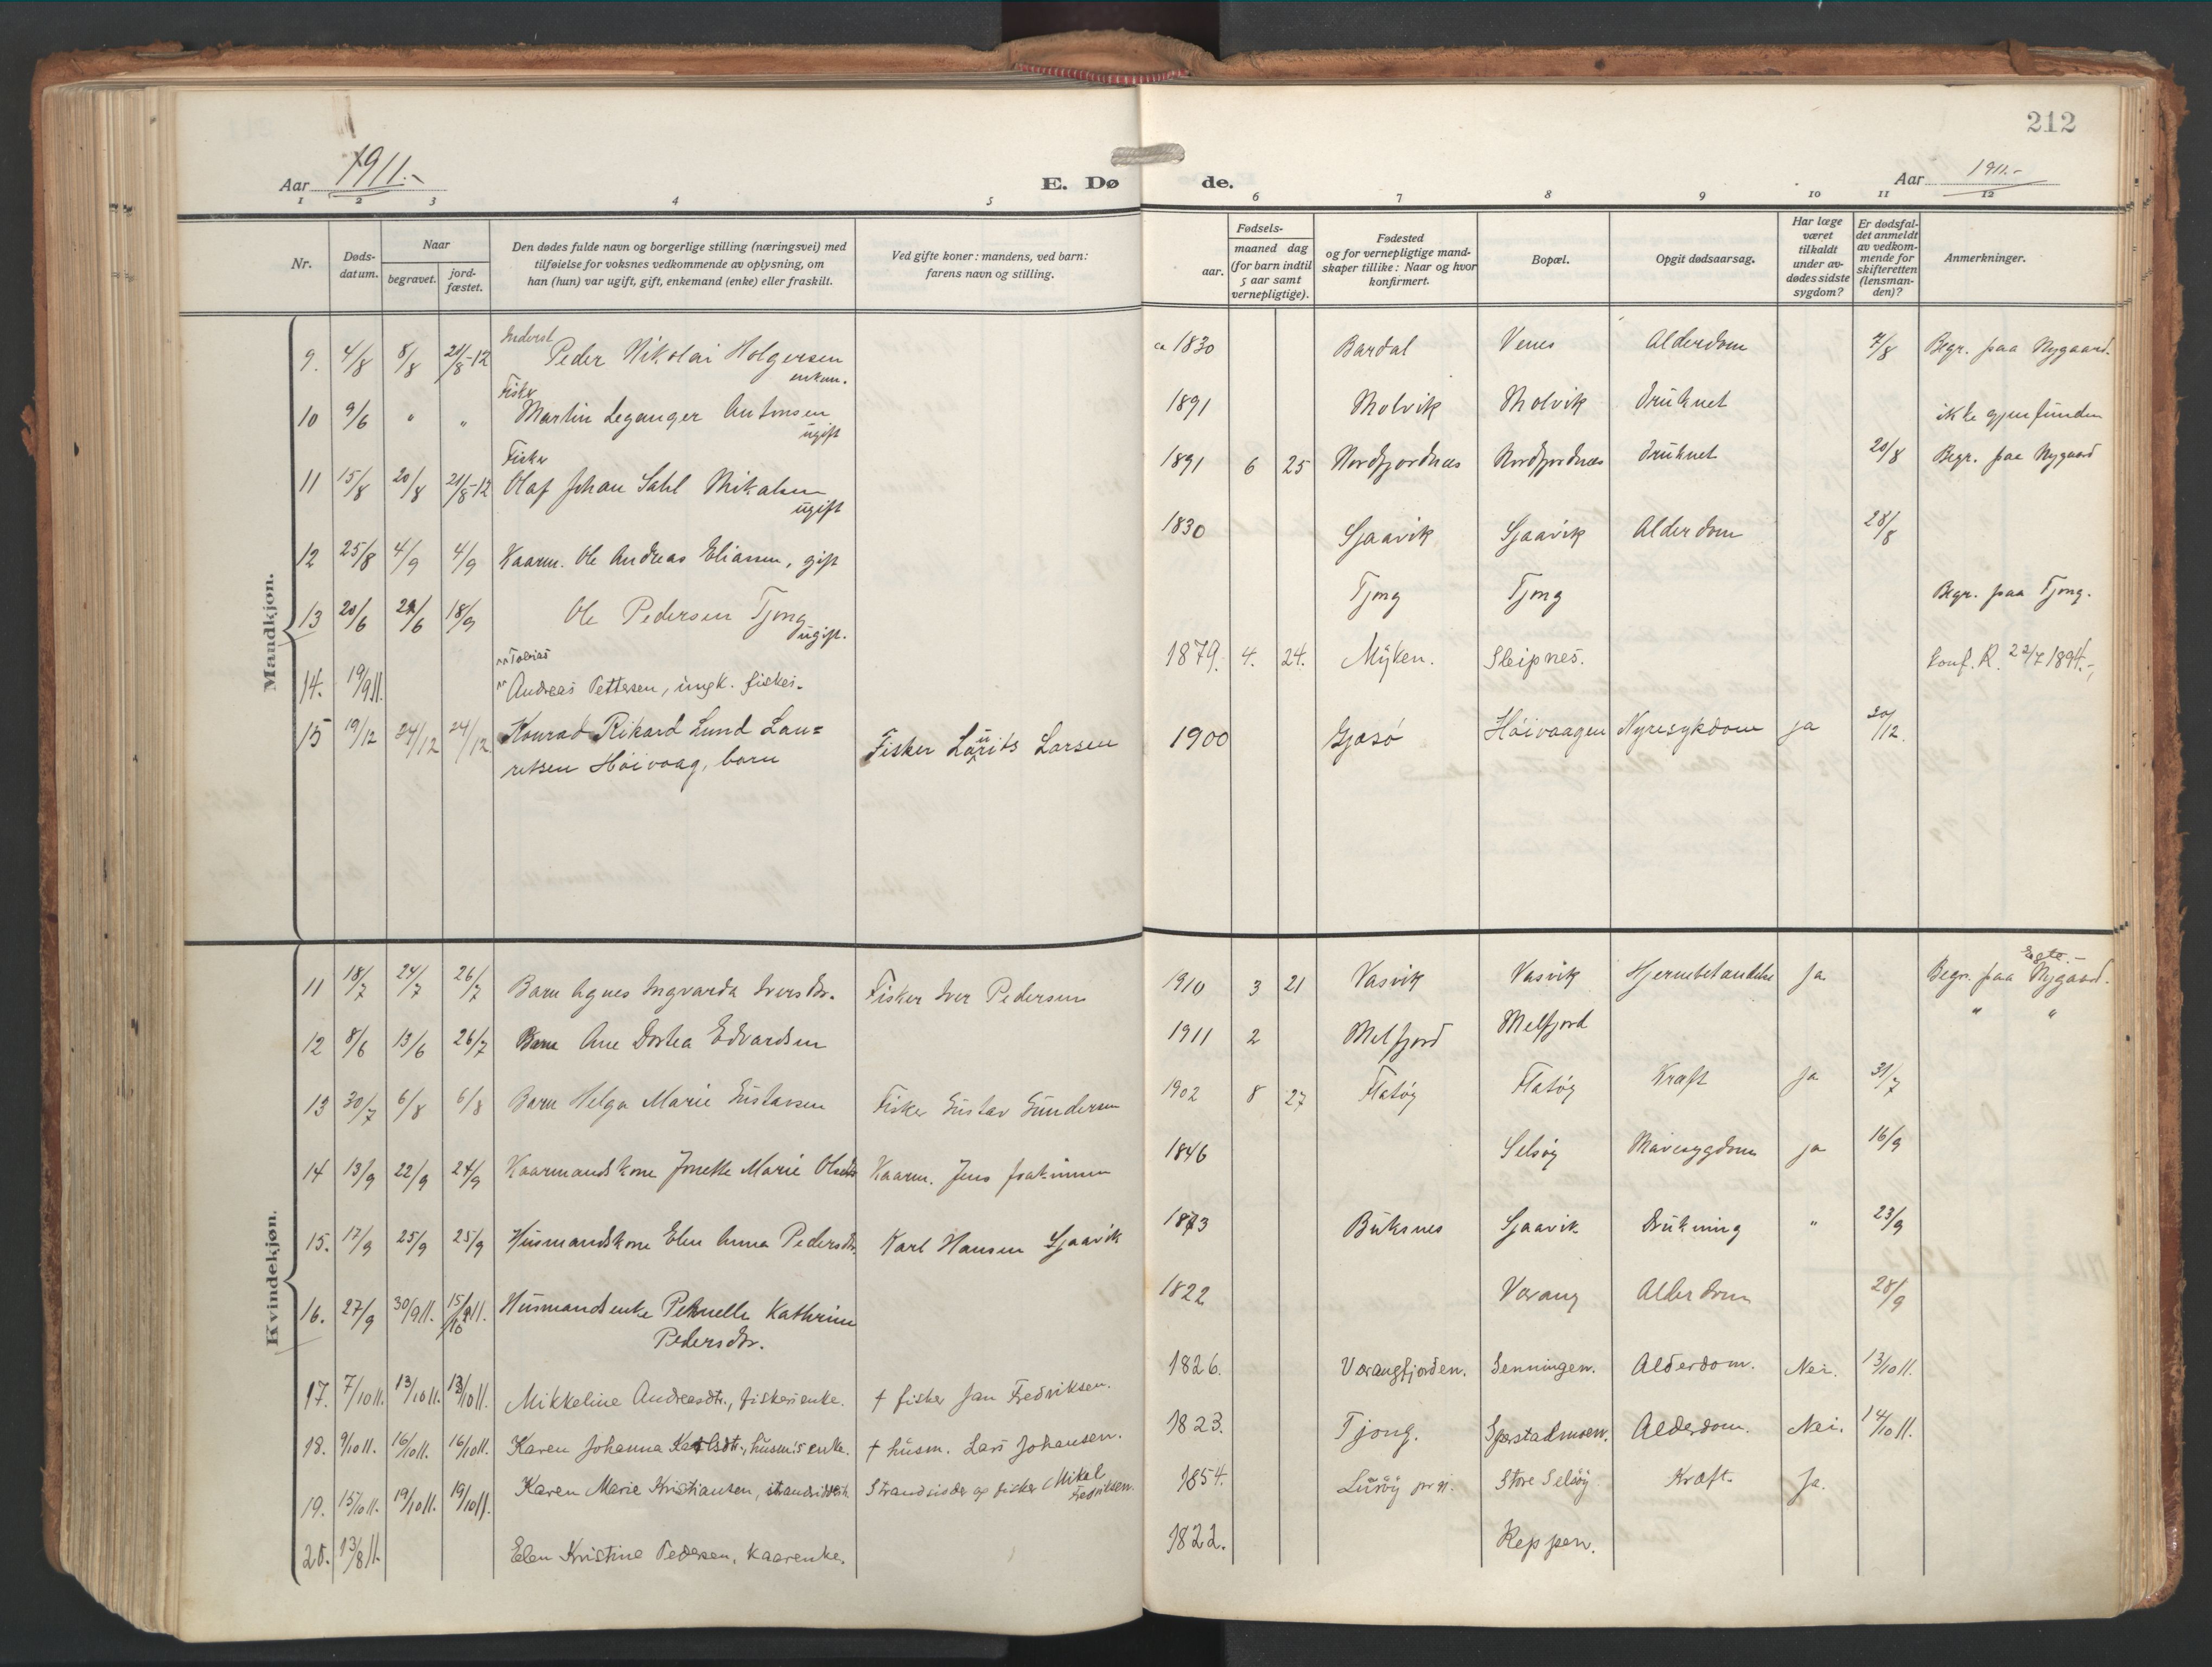 212
Aar 1911.-
E. Døde.
Aar 1911.-
1 2 3 4 5 6 7 8 9 10 11 12
Nr.
Døds-
datum.
Naar
begravet.
jord-
fæstet.
Den dødes fulde navn og borgerlige stilling (næringsvei) med
tilføielse for voksnes vedkommende av oplysning, om
han (hun) var ugift, gift, enkemand (enke) eller fraskilt.
Ved gifte koner: mandens, ved barn:
farens navn og stilling.
Fødsels-
aar.
maaned dag
(for barn indtil
5 aar samt
vernepligtige).
Fødested
og for vernepligtige mand-
skaper tillike: Naar og hvor
konfirmert.
Bopæl.
Opgit dødsaarsag.
Har læge
været
tilkaldt
under av-
dødes sidste
sygdom?
Er dødsfal-
det anmeldt
av vedkom-
mende for
skifteretten
(lensman-
den)?
Anmerkninger.
Mandkjøn.
Inderst
9. 4/8 8/8 21/8-12 Peder Nikolai Holgersen ca 1830 Bardal Venes Alderdom 7/8 Begr. paa Nygaard.
enkem.
Fisker
10 9/6 " " Martin Leganger Antonsen 1891 Molvik Molvik Druknet ikke gjenfunden
ugift
Fisker
11 15/8 20/8 21/8-12 Olaf Johan Dahl Mikalsen 1891 6 25 Nordfjordnæs Nordfjordnæs Druknet 20/8 Begr. paa Nygaard
ugift
12 25/8 4/9 4/9 Kaarm. Ole Andreas Eliassen, gift 1830 Sjaavik Sjaavik Alderdom 28/8
13 20/6 24/6 18/9 Ole Pedersen Tjong Tjong Tjong Begr. paa Tjong.
ugift.
Tobias
14. 19/9 11. Andreas Pettersen, ungk. fisker. 1879. 4. 24. Myken. Sleipnes. Konf. R. 22/7 1894.-,
15 19/12 24/12 24/12 Konrad Rikard Lund Lau= Fisker Laurits Larsen 1900 Gjæsø Høivaagen Nyresykdom ja 20/12.
ritsen Høivaag, barn
Kvindekjøn.
11 18/7 24/7 26/7 Barn Agnes Ingvarda Iversdtr. Fisker Iver Pedersen 1910 3 21 Vasvik Vasvik Hjernebetændelse Ja Begr. paa Nygaard.
12 8/6 13/6 26/7 Barn Ane Dortea Edvardsen 1911 2 Melfjord Melfjord " "
13 30/7 6/8 6/8 Barn Helga Marie Gustavsen Fisker Gustav Gundersen 1902 8 27 Flatøy Flatøy Kræft Ja 31/7
14 13/9 22/9 24/9 Kaarmandskone Jonette Marie Olsdtr Kaarm. Jens Joakimsen 1846 Selsøy Mavesygdom ja 16/9
15. 17/9 25/9 25/9 Husmandskone Elen Anna Pedersdtr. Karl Hansen Sjaavik 1873 Buksnes Sjaavik Drukning " 23/9
16. 27/9 30/9 11. 15/10 11. Husmandsenke Petnelle Kathrine 1822 Værang Alderdom 28/9
Pedersdtr.
17. 7/10 11. 13/10 11. 13/10 11. Mikkeline Andreasdtr., fiskerienke. † fisker Jan Fredriksen. 1826. Værangfjorden. Senningen. Alderdom. Nei. 13/10 11.
18. 9/10 11. 16/10 11. 16/10 11. Karen Johanna Karlsdtr., husm's enke. † husm. Lars Johansen. 1823. Tjong. Alderdom. Nei. 14/10 11.
19. 15/10 11. 19/10 11. 19/10 11. Karen Marie Kristiansen, Strandsidder og fisker Mikal 1854. Lurøy prgj. Store Selsøy Kræft. Ja.
Fredriksen.
20. 13/8 11. Elen Kristine Pedersen, kaarenke. 1822. Reppen.